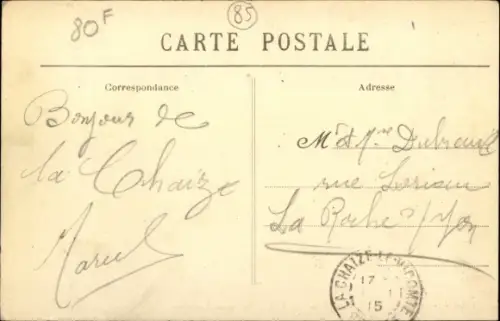 80F
85
CARTE POSTALE
Correspondance
Adresse
Bonjour de
la Chaize
Marcel
Mr et Mme Dubreuil
rue
La Roche s/ Yon
LA CHAIZE-LE-VICOMTE
17
15